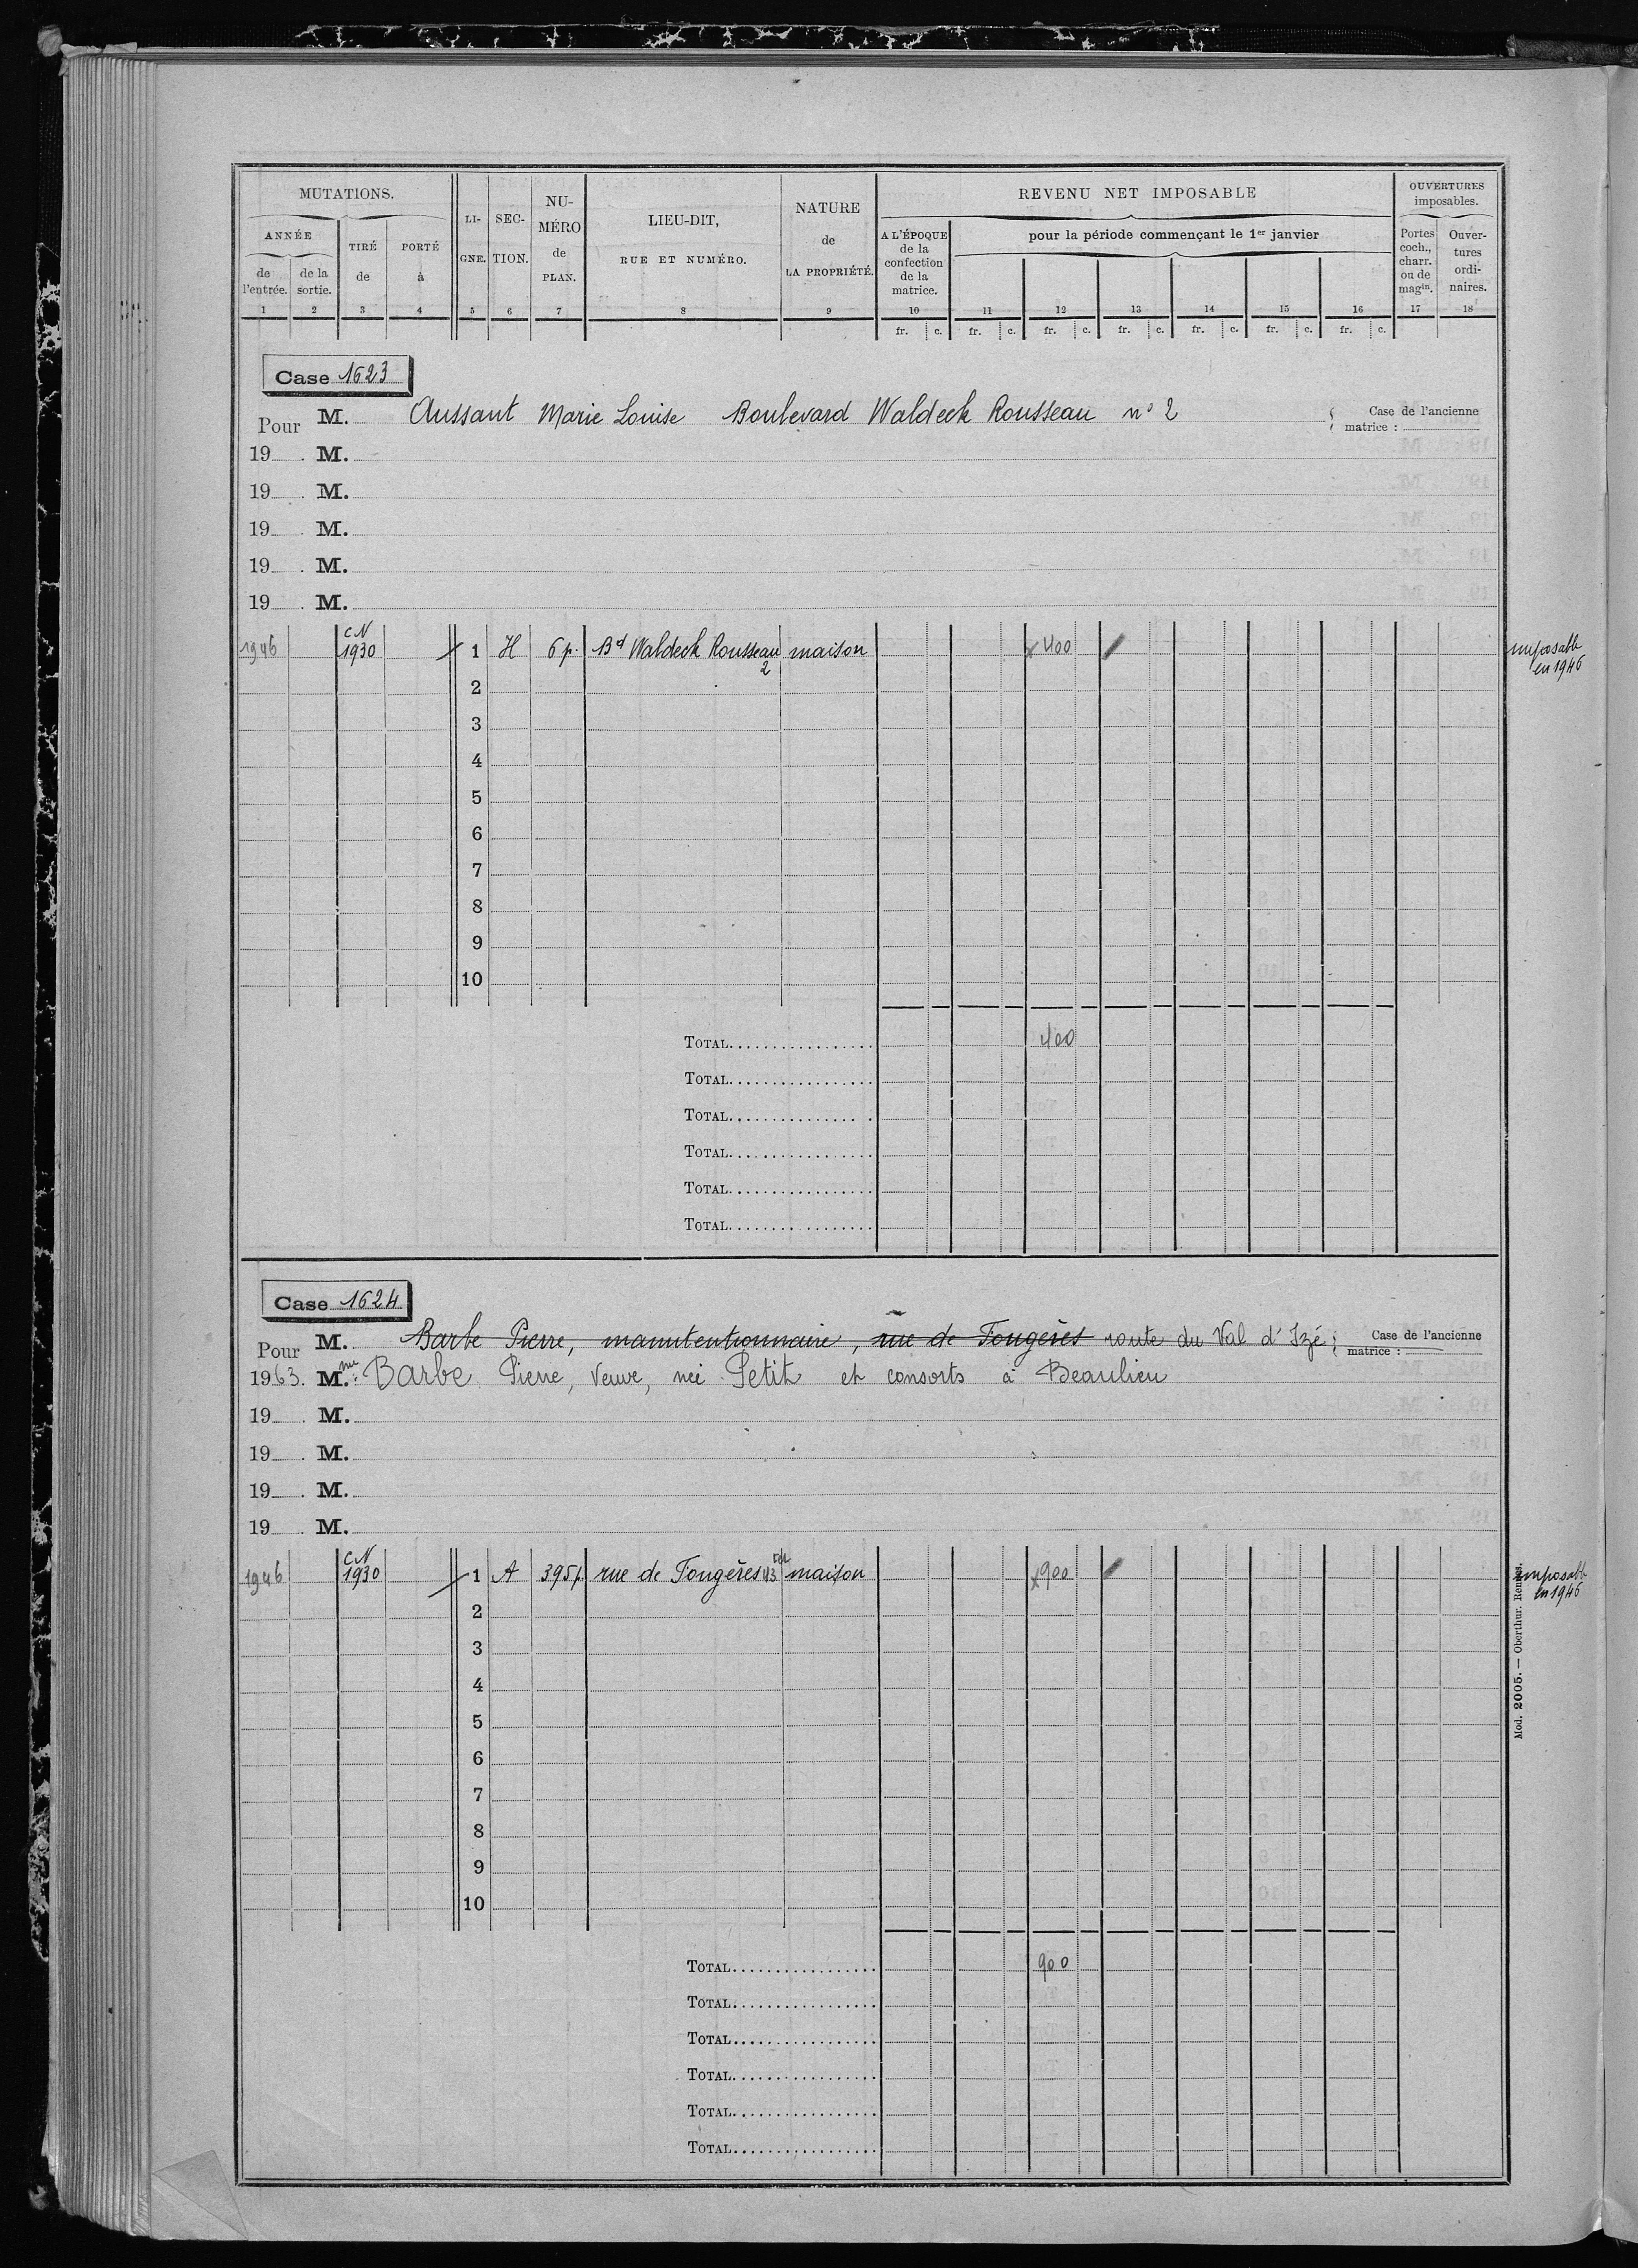 MUTATIONS.
ANNÉE
de l'entrée.
de la sortie.
TIRÉ de
PORTÉ à
LIGNE.
SECTION.
NUMÉRO de PLAN.
LIEU-DIT,
RUE ET NUMÉRO.
NATURE
de
LA PROPRIÉTÉ.
REVENU NET IMPOSABLE
A L'ÉPOQUE
de la
confection
de la
matrice.
pour la période commençant le 1er janvier
OUVERTURES
imposables.
Portes
coch.,
charr.
ou de
magin.
Ouver-
tures
ordi-
naires.
1 2 3 4 5 6 7 8 9 10 11 12 13 14 15 16 17 18
fr. c. fr. c. fr. c. fr. c. fr. c. fr. c. fr. c.
Case 1623
Pour M. Aussant Marie Louise Boulevard Waldeck Rousseau n° 2
Case de l'ancienne
matrice :
19 . M.
19 . M.
19 . M.
19 . M.
19 . M.
1946 CN 1930 1 H 6 p. Bd Waldeck Rousseau 2 maison 400 imposable en 1946
2
3
4
5
6
7
8
9
10
TOTAL 400
TOTAL
TOTAL
TOTAL
TOTAL
TOTAL
Case 1624
Pour M. Barbe Pierre, manutentionnaire, rue de Fougères route du Val d'Izé
Case de l'ancienne
matrice :
1963. Mme Barbe Pierre, Veuve, née Petit et consorts à Beaulieu
19 . M.
19 . M.
19 . M.
19 . M.
1946 CN 1930 1 A 395p. rue de Fougères maison 900 imposable en 1946
2
3
4
5
6
7
8
9
10
TOTAL 900
TOTAL
TOTAL
TOTAL
TOTAL
TOTAL
Mod. 2005. — Oberthur. Rennes.